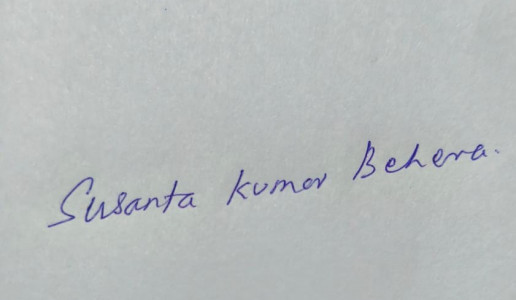 Susanta Kumar Behera.